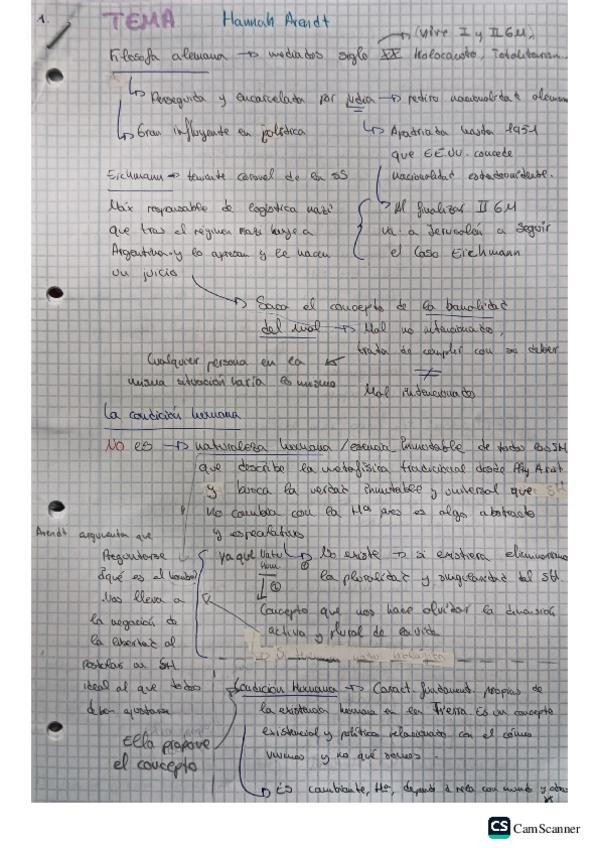 1.
TEMA Hannah Arendt
(vive I y II GM,
Filósofa alemana → mediados siglo XX Holocausto, Totalitarism
↳ Perseguida y encarcelada por judía → retiro nacionalidad aleman
↳ Gran influyente en política
↳ Apátrida hasta 1951
que EE.UU. concede
nacionalidad estadounidense.
Eichmann → teniente coronel de las SS
Máx responsable de logística nazi
que tras el régimen nazi huye a
Argentina y lo apresan y le hacen
un juicio
Al finalizar II GM
va a Jerusalén a seguir
el Caso Eichmann
Saca el concepto de la banalidad
del mal → Mal no intencionado,
trata de cumplir con su deber
≠
Mal intencionado
Cualquier persona en la
misma situación haría lo mismo
La condición humana
NO es → naturaleza humana / esencia inmutable de todos los SH
que describe la metafísica tradicional desde Arist
y busca la verdad inmutable y universal que SH
no cambia con la Hª pues es algo abstracto
y especulativo
Arendt argumenta que
Preguntarse
¿qué es el hombre?
Nos lleva a
la negación de
la libertad al
postular un SH
ideal al que todos
deben ajustarse
ya que Natu
hum
No existe → si existiera eliminaríamos
la pluralidad y singularidad del SH.
Concepto que nos hace olvidar la dimensión
activa y plural de la vida
Ella propone
el concepto
Condición Humana → Caract. fundament. propias de
la existencia humana en la Tierra. Es un concepto
existencial y política relacionado con el cómo
vivimos y no qué somos.
↳ Es cambiante, Hª, depend d rela con mundo y otros
CS CamScanner